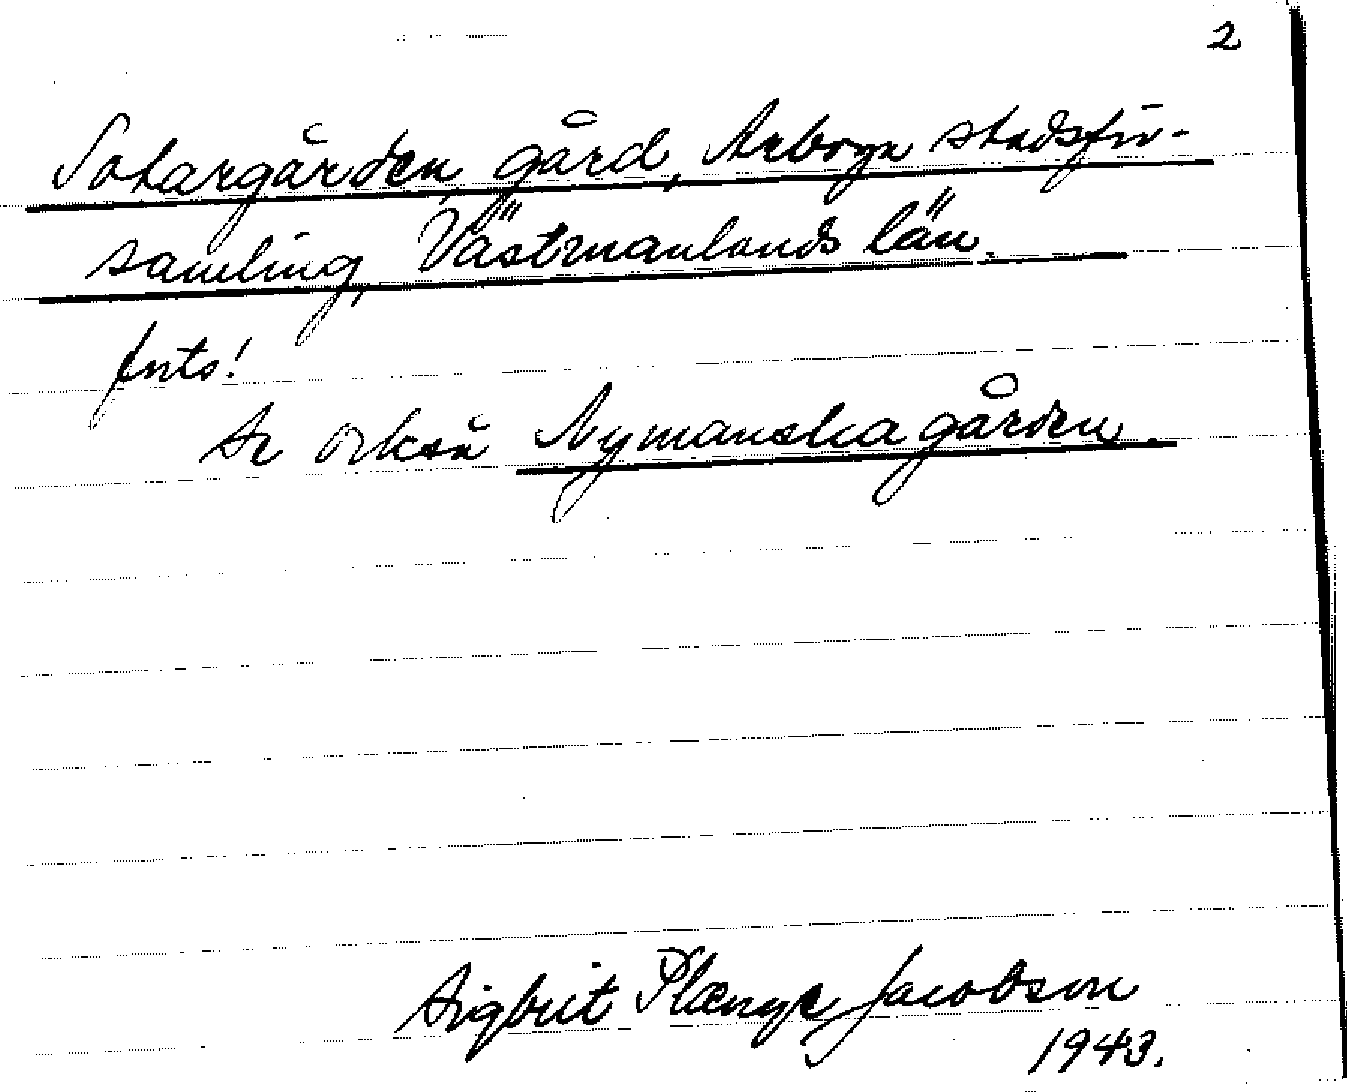 2
Sotargården, gård, Arboga stadsför-
samling, Västmanlands län.
forts!
Se också Nymanska gården.
Sigbrit Plænge Jacobson
1943.